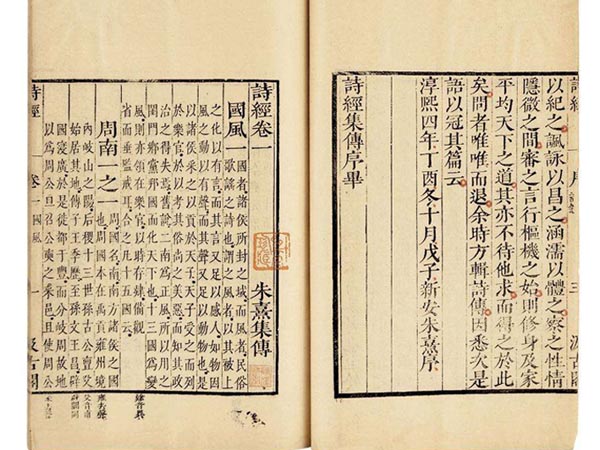 詩經 序 三 汲古閣
以紀之諷詠以昌之涵濡以體之察之性情
隱微之間審之言行樞機之始則修身及家
平均天下之道其亦不待他求而得之於此
矣問者唯唯而退余時方輯詩傳因悉次是
語以冠其篇云
淳熙四年丁酉冬十月戊子新安朱熹序
詩經集傳序畢
詩經卷一 朱熹集傳
國風一 國者諸侯所封之域而風者民俗
歌謠之詩也謂之風者以其被上
之化以有言而其言又足以感人如物因
風之動以有聲而其聲又足以動物也是
以諸侯采之以貢於天子天子受之而列
於樂官於以考其俗尚之美惡而知其政
治之得失焉舊說二南為正風所以用之
閨門鄉黨邦國而化天下也十三國為變
風則亦領在樂官以時存肄備觀
省而垂監戒耳合之凡十五國云
周南一之一 周國名南南方諸侯之國
也周國本在禹貢雍州境
內岐山之陽后稷十三世孫古公亶父
始居其地傳子王季歷至孫文王昌辟
國寖廣於是徙都于豐而分岐周故地
以為周公旦召公奭之采邑且使周公
詩經 卷一 國風 一 汲古閣